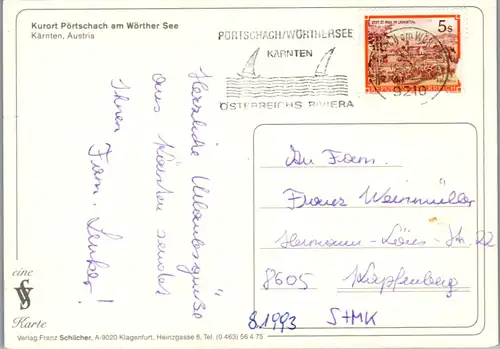 Kurort Pörtschach am Wörther See
Kärnten, Austria
PÖRTSCHACH/WÖRTHERSEE
KÄRNTEN
ÖSTERREICHS RIVIERA
STIFT ST. PAUL IM LAVANTTAL
5s
REPUBLIK ÖSTERREICH
am Wörther
9210
Herzliche Urlaubsgrüße
aus Kärnten sendet
Ihnen Fam.
An Fam.
Franz Weinmüller
Hermann-Löns-Str. 22
8605 Kapfenberg
STMK
8.1993
eine
VS
Karte
Verlag Franz Schilcher, A-9020 Klagenfurt, Heinzgasse 8, Tel. (0 463) 56 4 75